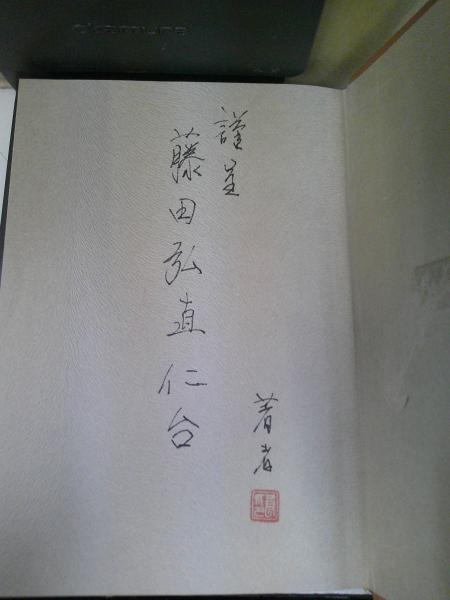 okamura
謹呈
藤田弘直仁台
著者